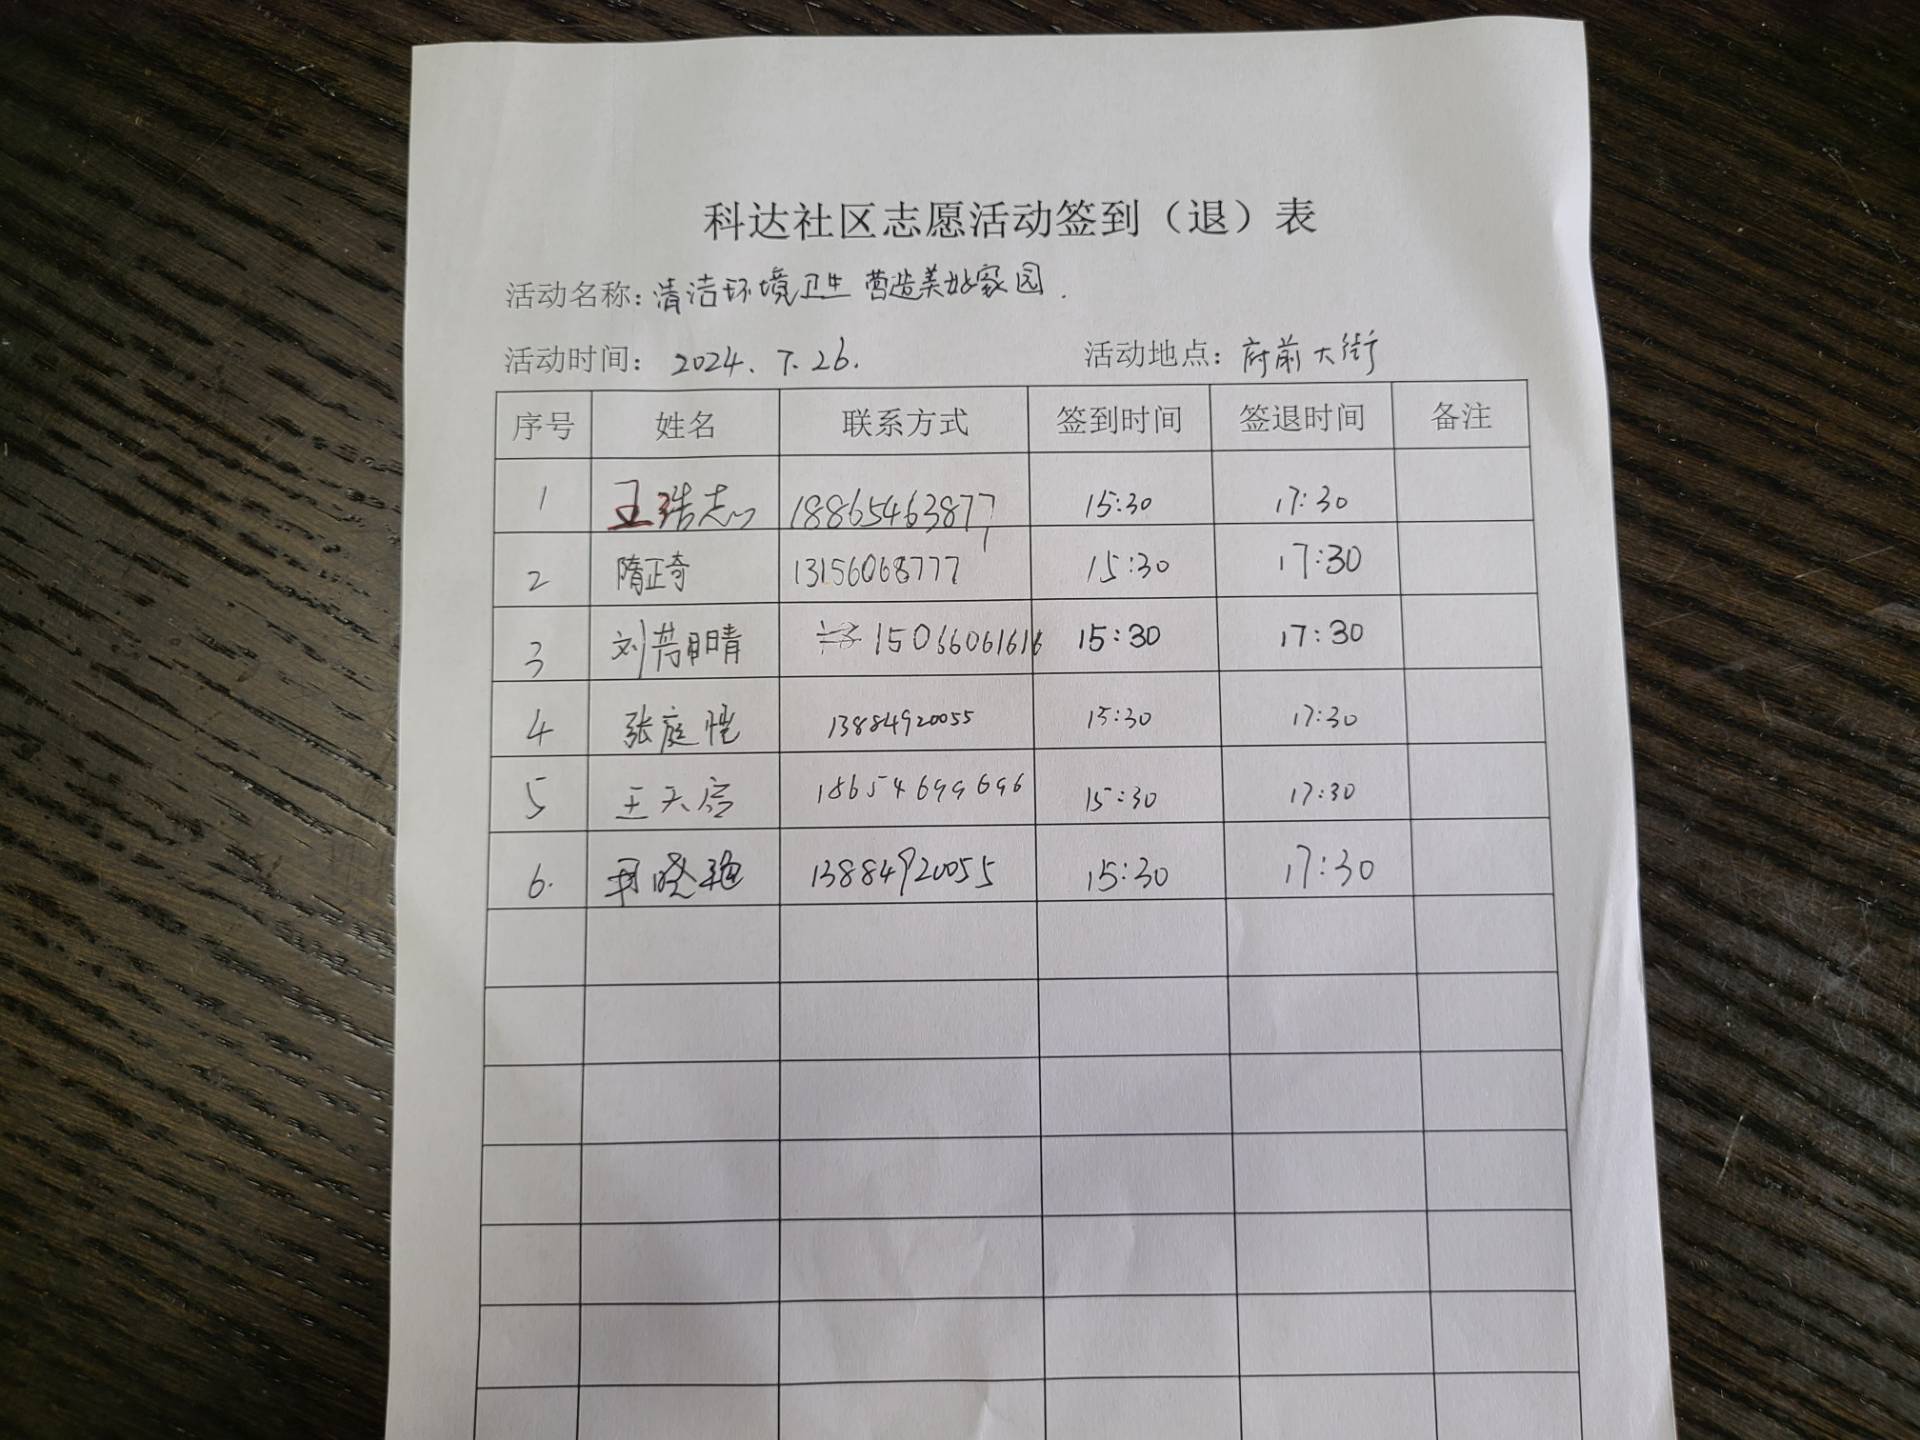 科达社区志愿活动签到（退）表
活动名称: 清洁环境卫生 营造美好家园.
活动时间: 2024.7.26. 活动地点: 府前大街
序号 姓名 联系方式 签到时间 签退时间 备注
1 王浩志 18865463877 15:30 17:30
2 隋正奇 13156068777 15:30 17:30
3 刘 晴 15066061616 15:30 17:30
4 张庭恺 13884920055 15:30 17:30
5 王天启 18654699696 15:30 17:30
6. 晓艳 13884920055 15:30 17:30